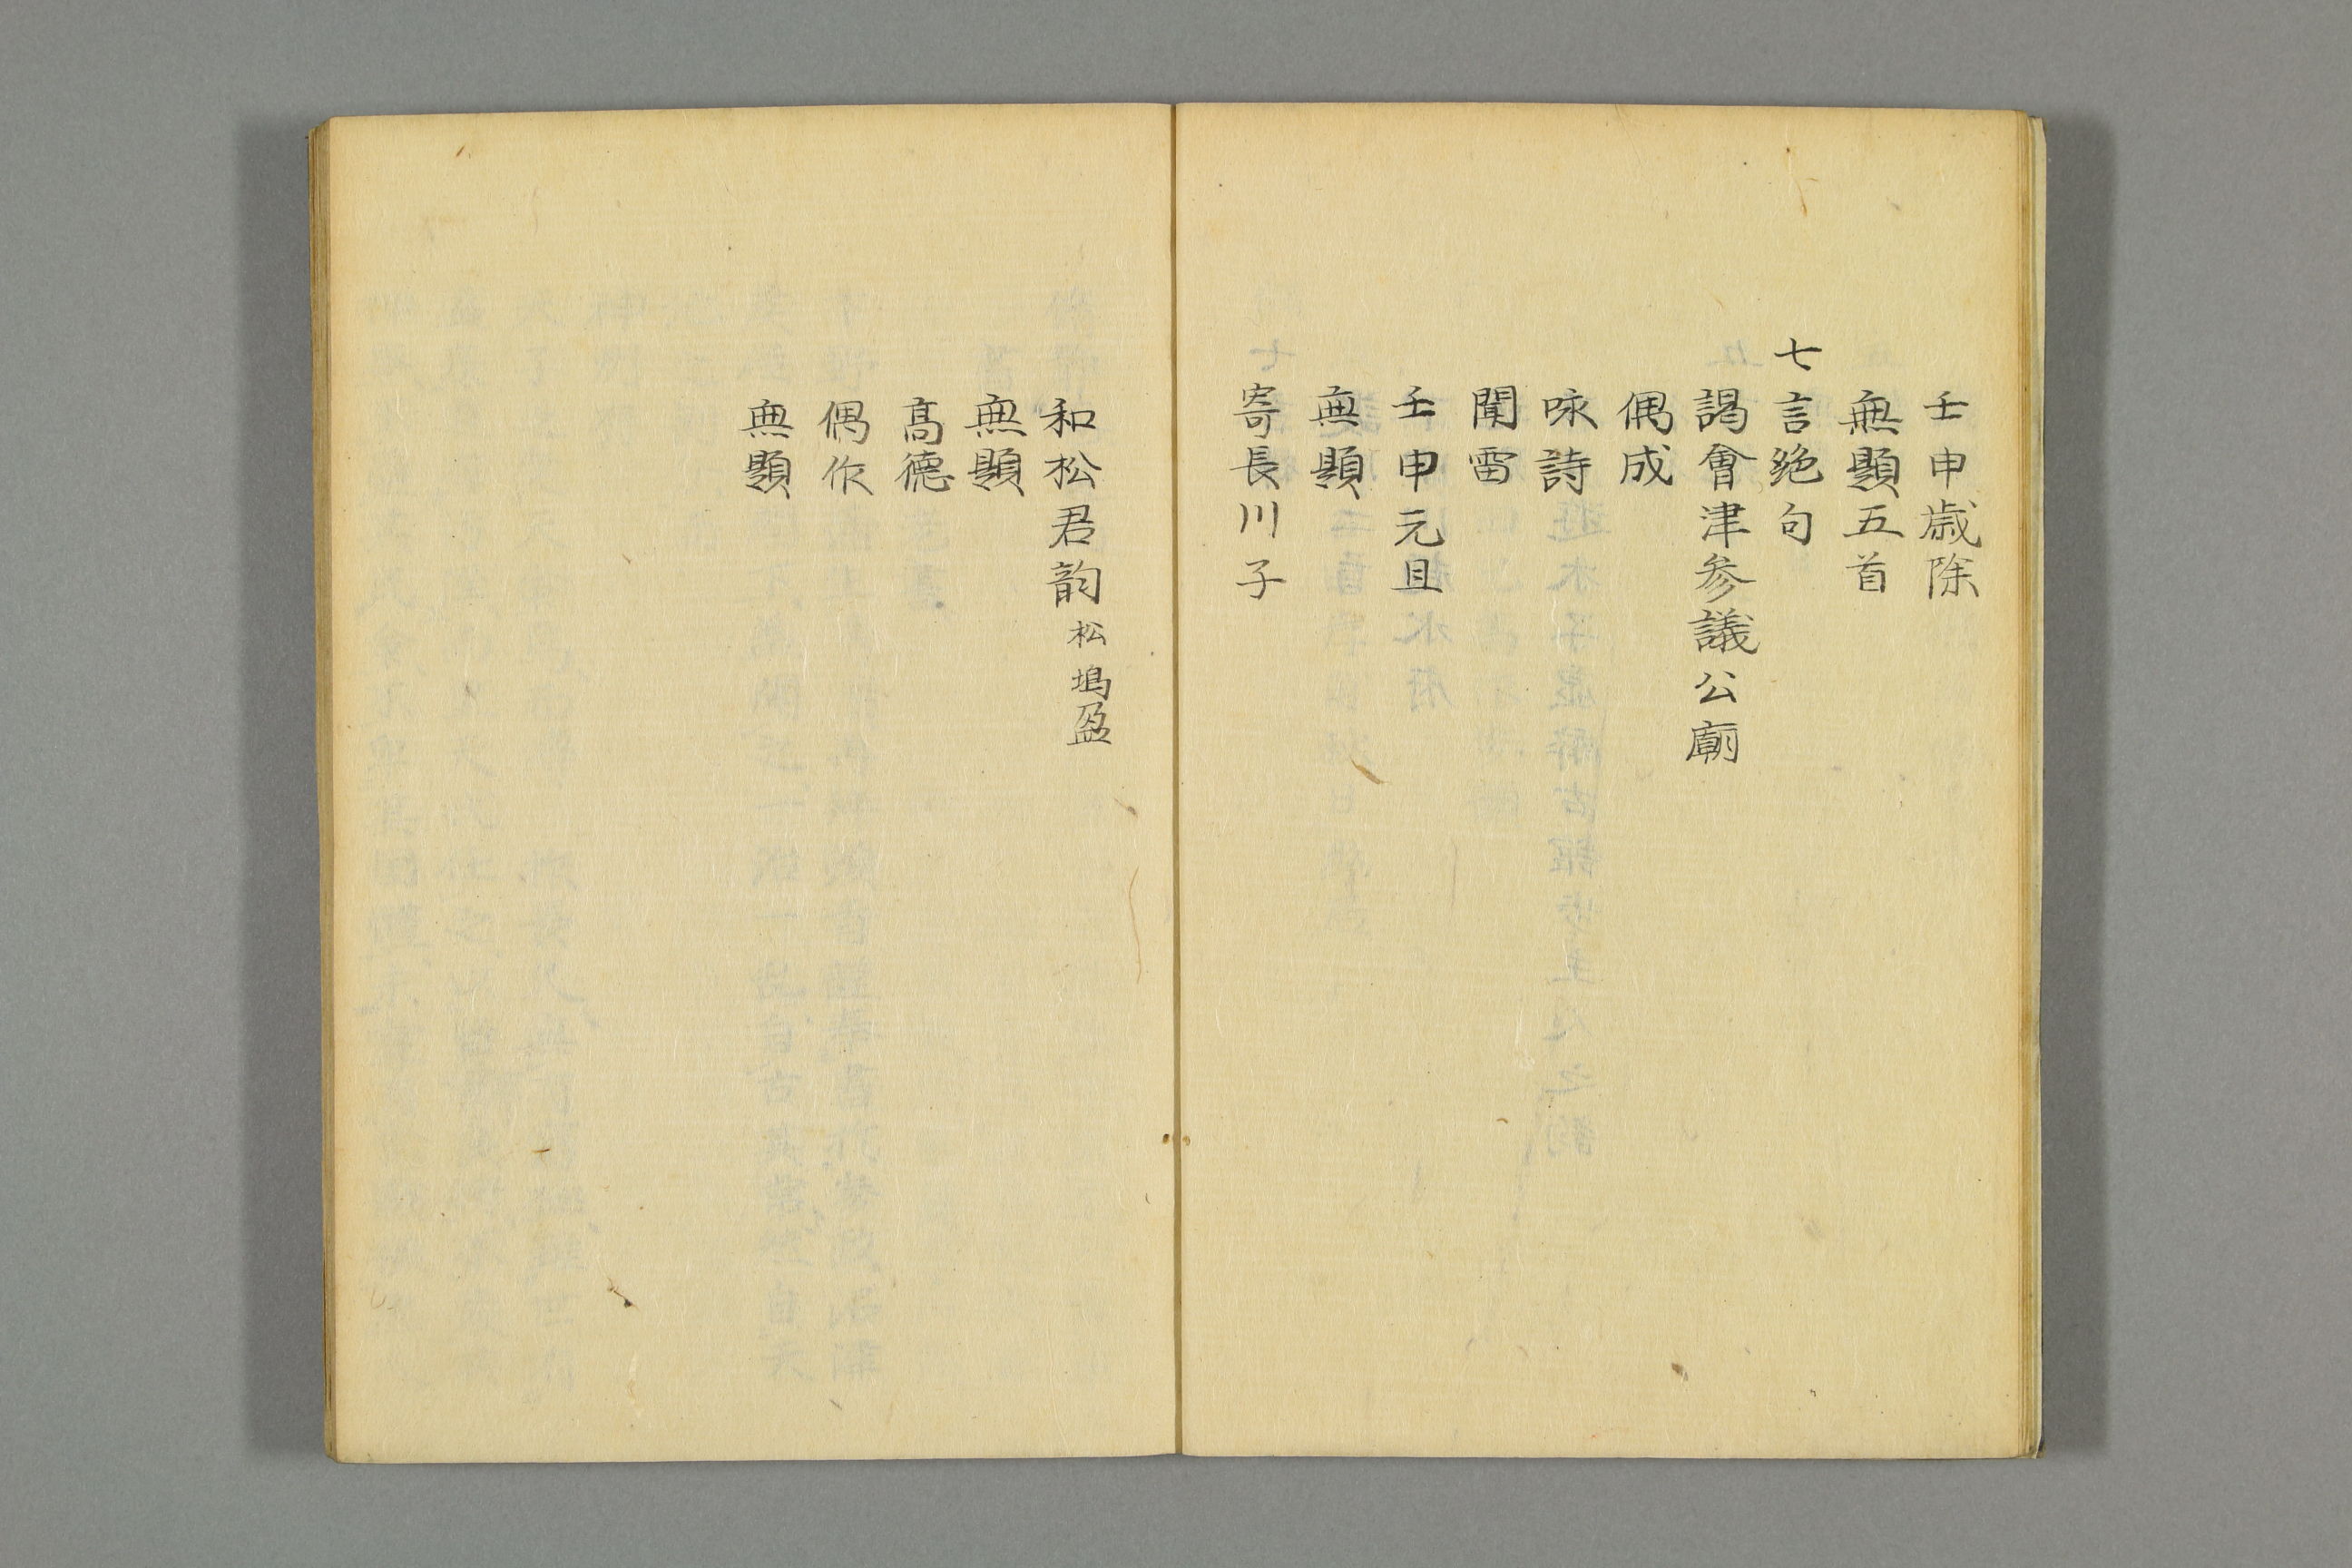 壬申歳除
無題五首
七言絶句
謁會津参議公廟
偶成
咏詩
聞雷
壬申元旦
無題
寄長川子
和松君韵松塢盈
無題
髙德
偶作
無題